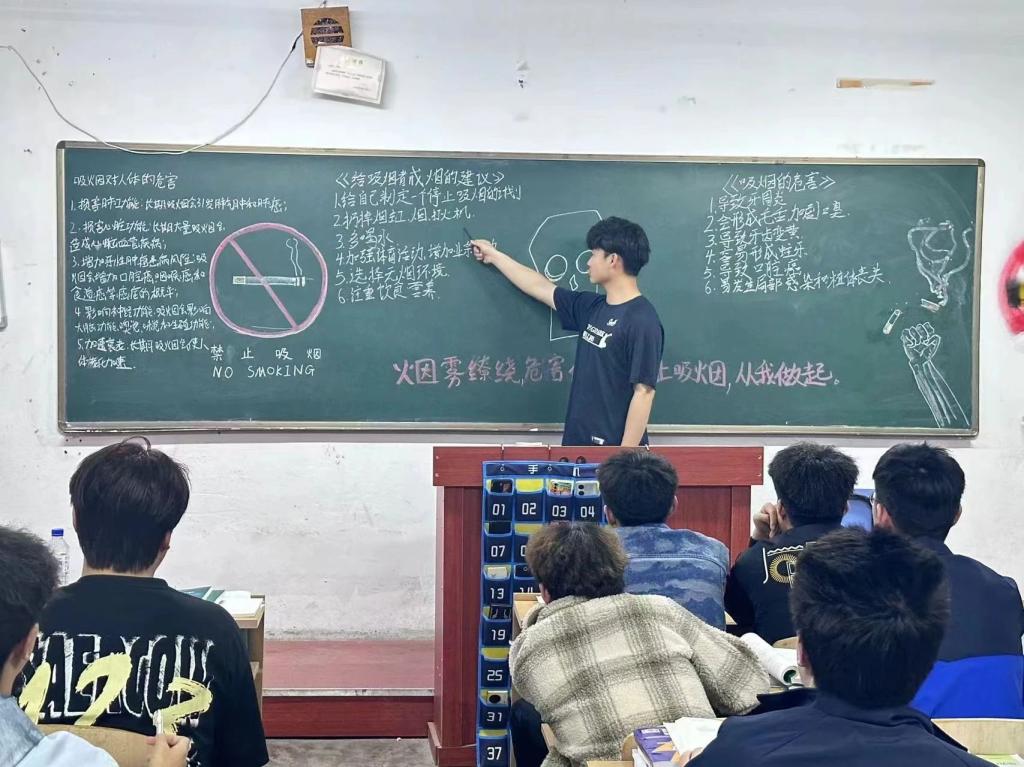 吸烟对人体的危害
1.损害肺功能:长期吸烟会引发肺气肿和肺癌;
2.损害心脏功能:长期大量吸烟会
造成心脏血管疾病;
3.增加恶性肿瘤患病风险:吸
烟会增加口腔癌、咽喉癌和
食道癌等癌症的概率;
4.影响神经功能:吸烟会影响
大脑功能、
5.加速衰老:长期吸烟会使人
体老化加速.
禁止吸烟
NO SMOKING
《给吸烟者戒烟的建议》
1.给自己制定一个停止吸烟的计划
2.扔掉烟缸、烟、打火机.
3.多喝水
4.加强体育活动,增加业余
5.选择无烟环境.
6.注重饮食营养.
《吸烟的危害》
1.导致牙周炎
2.会形成
3.导致牙齿变黄
4.容易形成蛀牙
5.导致口腔癌
6.易发生局部感染和植体丢失
火因雾缭绕,危害
止吸烟,从我做起。
手 机
01 02 03 04
07
13
19
25
31
37